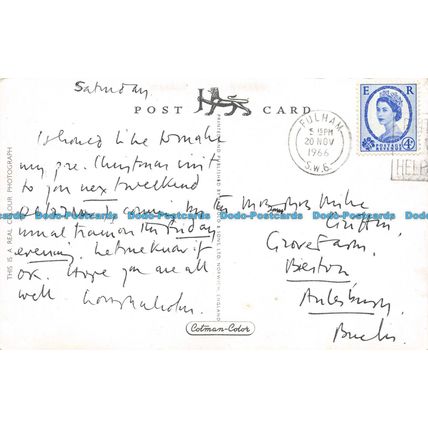 Saturday
POST CARD
I should like to make
my pre. Christmas visit
to you next weekend
to come by the
usual train on the Friday
evening. Let me know if
OK. Hope you are all
well
Grove Farm.
Bierton
Aylesbury.
Bucks.
FULHAM
5.15PM
20 NOV
1966
S.W.6.
E R
POSTAGE REVENUE
4D
HELP
THIS IS A REAL COLOUR PHOTOGRAPH
NORWICH, ENGLAND
Cotman-Color
Dodo-Postcards Dodo-Postcards Dodo-Postcards Dodo-Postcards Dodo-Postcards Dodo-Postcards